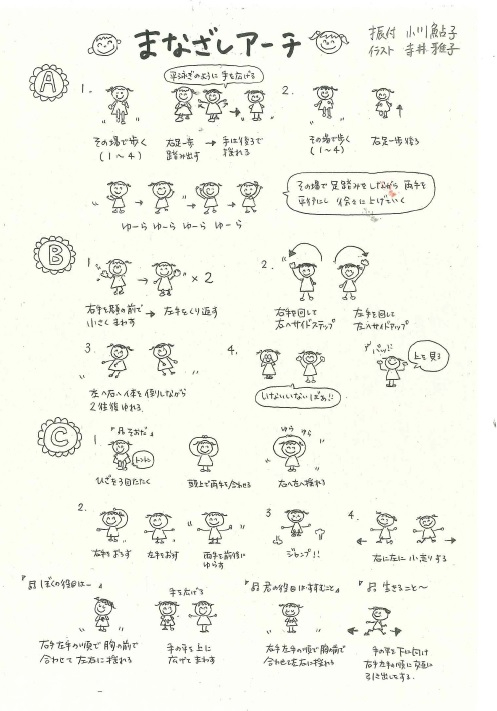 まなざしアーチ
振付 小川鮎子
イラスト 寺井雅子
A
平泳ぎのように 手を広げる
1.
その場で歩く
(1～4)
右足一歩
踏み出す
→ 手は後ろで
揺れる
2.
その場で歩く
(1～4)
右足一歩後ろ
ゆーら ゆーら ゆーら ゆーら
その場で 足踏みをしながら 両手を
平行にし 徐々に上げていく
B
1
×2
右手を顔の前で
小さく まわす
→ 左手をくり返す
2.
右手を回して
右へサイドステップ
左手を回して
左へサイドアップ
3.
左へ右へ体を倒しながら
2往復ゆれる
4.
いないいないばぁ!!
「パッ」
上を見る
C
1
『♫そおだ』
トントン
ひざを3回たたく
頭上で両手を合わせる
ゆら ゆら
右へ左へ揺れる
2.
右手をおろす
左手をおろす
両手を前後に
ゆらす
3
ジャンプ!!
4.
右に左に小走りする
『♫ぼくの役目はー』
右手左手の順で胸の前で
合わせて左右に揺れる
手を広げる
手の平を上に
広げてまわす
『♫君の役目はすすむこと』
右手左手の順で胸の前で
合わせて左右に揺れる
『♫生きること～
手の平を下に向け
右手左手の順に交互に
引き出しをする.